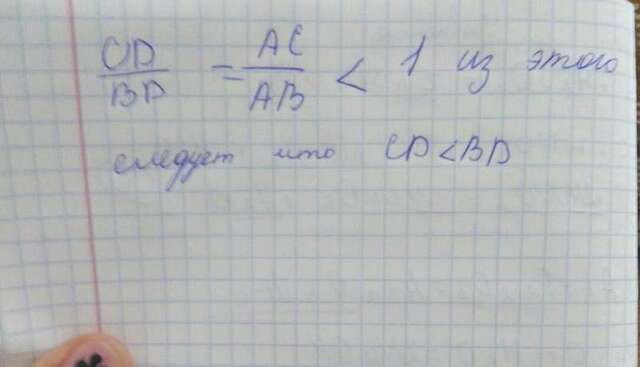 CD/BD = AC/AB < 1 из этого
следует что CD < BD